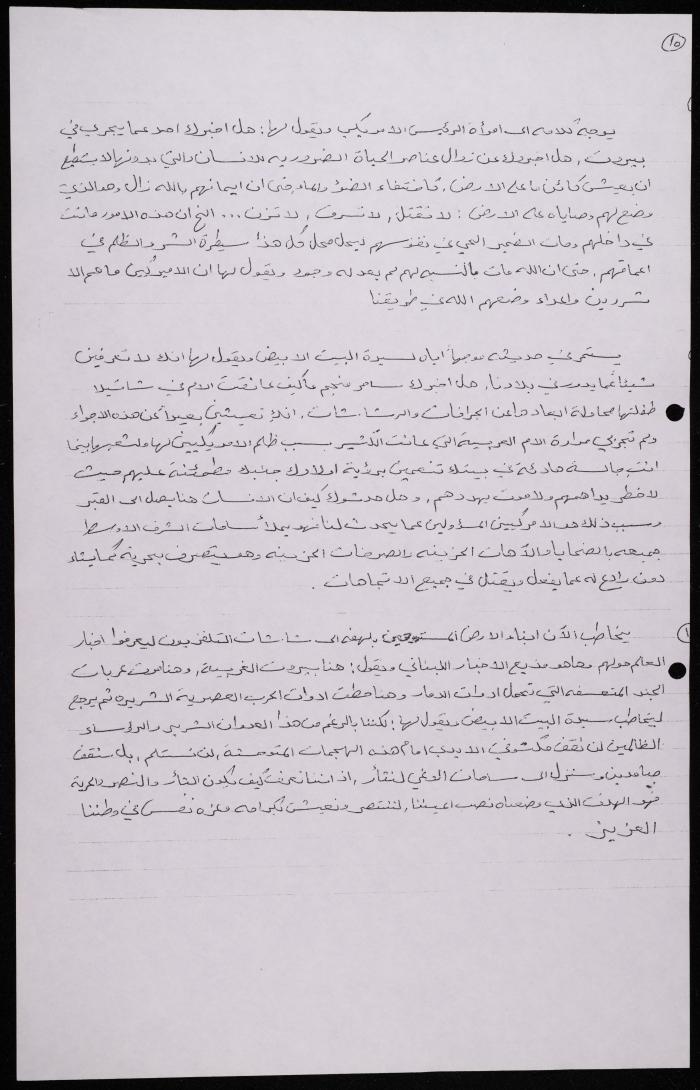 ١٥
يوجه كلامه الى امرأة الرئيس الامريكي ويقول لها: هل اخبرك احد عما يجري في
بيروت, هل اخبروك عن زوال عناصر الحياة الضرورية للانسان والتي بدونها لا يستطيع
ان يعيش كائن ما على الارض, كانتفاء الضوء والماء, حتى ان ايمانهم بالله زال وهو الذي
وضع لهم وصاياه على الارض: لا تقتل, لا تسرق, لا تزن ... الخ ان هذه الامور ماتت
في داخلهم ومات الضمير الحي في نفوسهم ليحل محل كل هذا سيطرة الشر والظلم في
اعماقهم, حتى ان الله مات بالنسبه لهم لم يعد له وجود ويقول لها ان الاميركيين ما هم الا
شردين واعداء وضعهم الله في طريقنا
يستمر في حديثه موجهاً اياه لسيدة البيت الابيض ويقول لها انك لا تعرفين
شيئاً عما يدور في بلادنا, هل اخبرك سامر منجم ما كيف عانقت الام في شاتيلا
طفلتها محاولة ابعادها عن الجرافات والرشاشات, انك تعيشين بعيداً عن هذه الاجواء
ولم تجربي مرارة الام العربية التي عانت الكثير بسبب ظلم الامريكيين لها ولشعبها بينما
انت جالسة هادئة في بيتك تنعمين برؤية اولادك جانبك مطمئنة عليهم حيث
لا خطر يداهمهم ولا موت يهددهم, وهل حدثوك كيف ان الانسان هنا يصل الى القبر
وسبب ذلك هو الامركيين المسؤولين عما يحدث لنا فهو يملأ ساحات الشرق الاوسط
جميعه بالضحايا والآهات الحزينه والصرخات الحزينه وهو يتصرف بحرية كما يشاء
دون رادع له عما يفعل ويقتل في جميع الاتجاهات.
يخاطب الآن ابناء الارض المستوحين بلهفه الى شاشات التلفزيون ليعرفوا اخبار
العالم حولهم وها هو مذيع الاخبار اللبناني ويقول: هنا بيروت الغربية, وهنا موت عربات
الجند المتعسفه التي تحمل ادوات الدمار وهنا حطت ادوات الحرب العصرية الشريره ثم يرجع
ليخاطب سيدة البيت الابيض ويقول لها: لكننا بالرغم من هذا العدوان الشرير والرؤساء
الظالمين لن نقف مكتوفي الايدي امام هذه الهجمات المتوحشة, لن نستسلم, بل سنقف
صامدين وسننزل الى ساحات الوغى لنثأر, اذ اننا نعرف كيف يكون الثأر والنصر والحرية
فهو الهدف الذي وضعناه نصب اعيننا, لننتصر ونعيش بكرامه وعزه نفس في وطننا
العزيز.